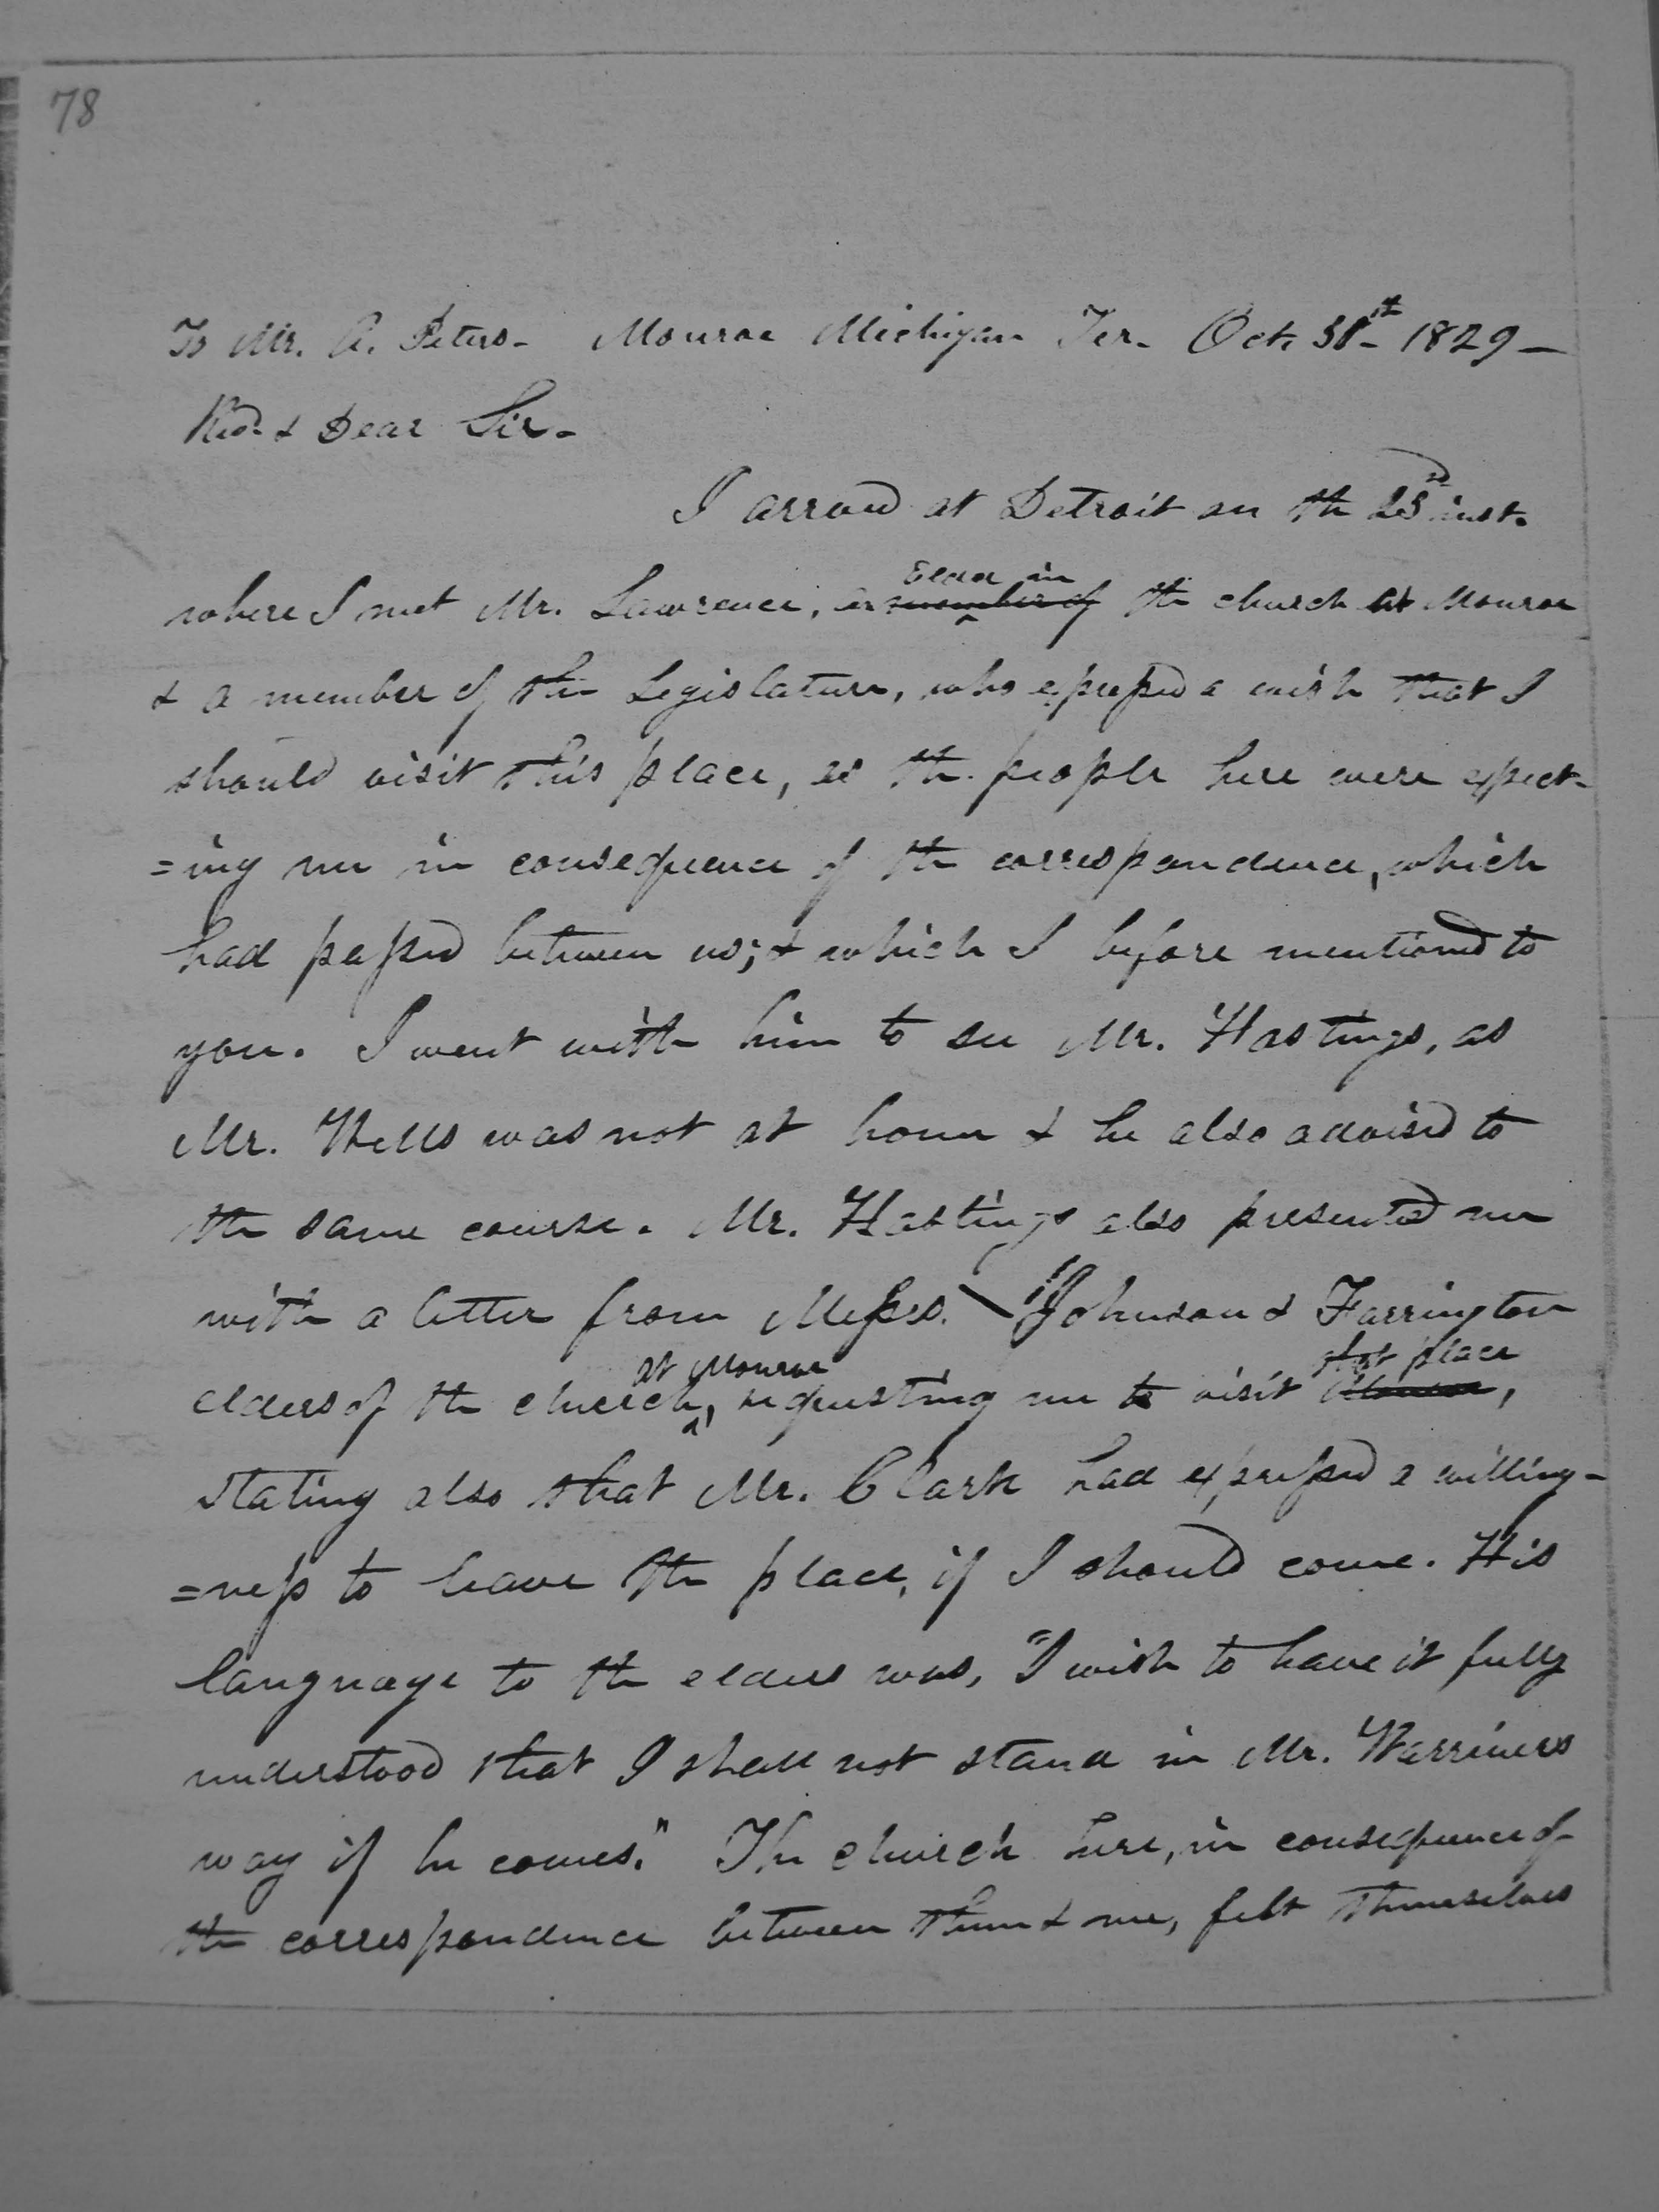 78
To Mr. A. Peters - Monroe Michigan Ter. Oct. 30th - 1829 -
Revd. & Dear Sir -
I arrived at Detroit on the 23d inst.
where I met Mr. Lawrence, Elder in
member of the church at Monroe
& a member of the Legislature, who expressed a wish that I
should visit this place, as the people here were expect-
=ing me in consequence of the correspondence, which
had passed between us; & which I before mentioned to
you. I went with him to see Mr. Hastings, as
Mr. Wells was not at home & he also advised to
the same course. Mr. Hastings also presented me
with a letter from Messrs. Johnson & Farrington
at Monroe that place
elders of the church, requesting me to visit Monroe,
stating also that Mr. Clark had expressed a willing-
=ness to leave the place, if I should come. His
language to the elders was, "I wish to have it fully
understood that I shall not stand in Mr. Warriners
way if he comes." The church here, in consequence of
the correspondence between them & me, felt themselves